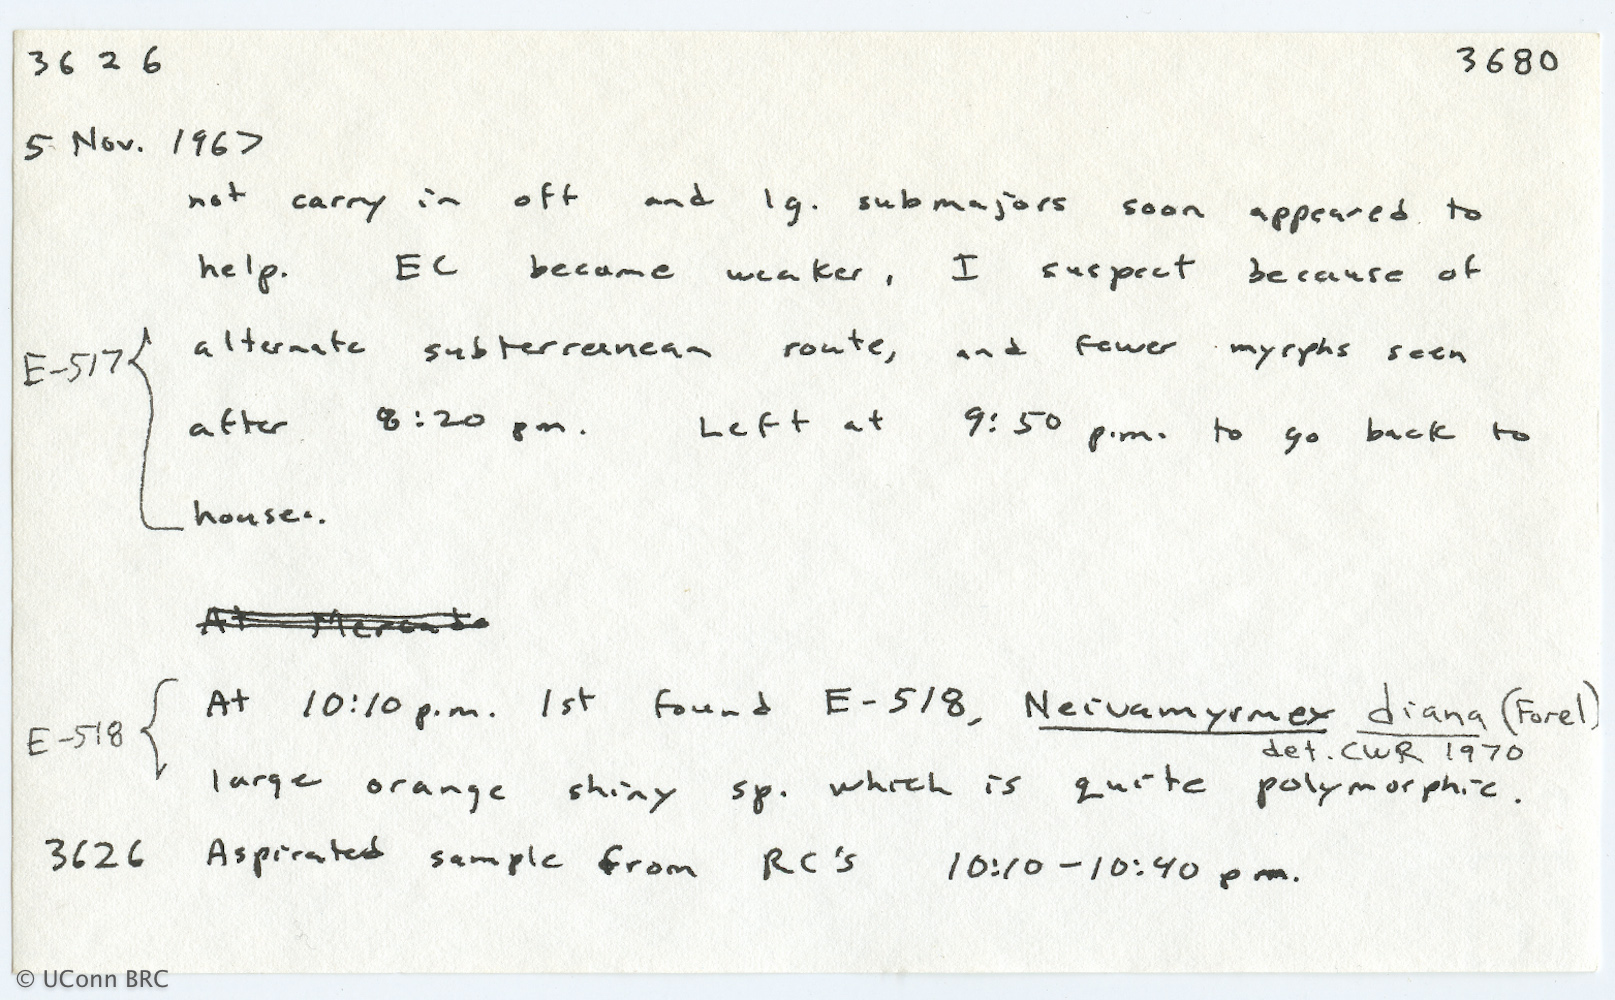 3626 3680
5 Nov. 1967
not carry in off and lg. submajors soon appeared to
help. EC became weaker, I suspect because of
E-517 alternate subterreanean route, and fewer myrphs seen
after 8:20 pm. Left at 9:50 p.m. to go back to
house.
At Mercado
E-518 At 10:10 p.m. 1st found E-518, Neivamyrmex diana (Forel)
det. CWR 1970
large orange shiny sp. which is quite polymorphic.
3626 Aspirated sample from RC's 10:10-10:40 pm.
© UConn BRC